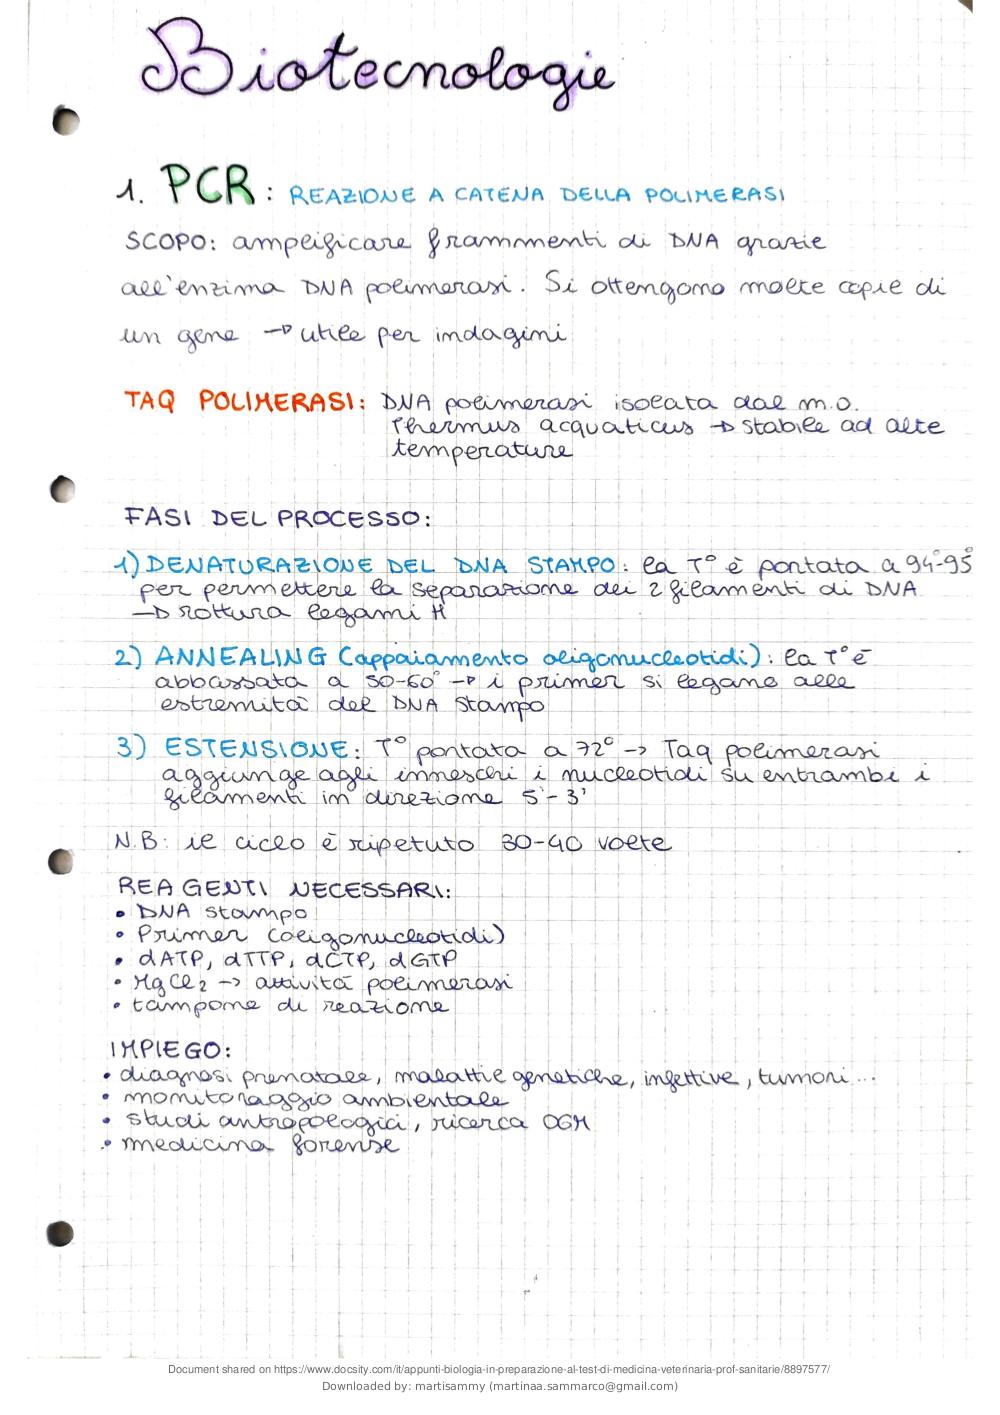 Biotecnologie
1. PCR: REAZIONE A CATENA DELLA POLIMERASI
SCOPO: amplificare frammenti di DNA grazie
all'enzima DNA polimerasi. Si ottengono molte copie di
un gene → utile per indagini
TAQ POLIMERASI: DNA polimerasi isolata dal m.o.
Thermus acquaticus → stabile ad alte
temperature
FASI DEL PROCESSO:
1) DENATURAZIONE DEL DNA STAMPO: la T° è portata a 94°-95°
per permettere la separazione dei 2 filamenti di DNA
→ rottura legami H
2) ANNEALING (appaiamento oligonucleotidi): la T° è
abbassata a 50-60° → i primer si legano alle
estremità del DNA stampo
3) ESTENSIONE: T° portata a 72° → Taq polimerasi
aggiunge agli inneschi i nucleotidi su entrambi i
filamenti in direzione 5'-3'
N.B: il ciclo è ripetuto 30-40 volte
REAGENTI NECESSARI:
• DNA stampo
• Primer (oligonucleotidi)
• dATP, dTTP, dCTP, dGTP
• MgCl2 → attività polimerasi
• tampone di reazione
IMPIEGO:
• diagnosi prenatale, malattie genetiche, infettive, tumori...
• monitoraggio ambientale
• studi antropologici, ricerca OGM
• medicina forense
Document shared on https://www.docsity.com/it/appunti-biologia-in-preparazione-al-test-di-medicina-veterinaria-prof-sanitarie/8897577/
Downloaded by: martisammy (martinaa.sammarco@gmail.com)